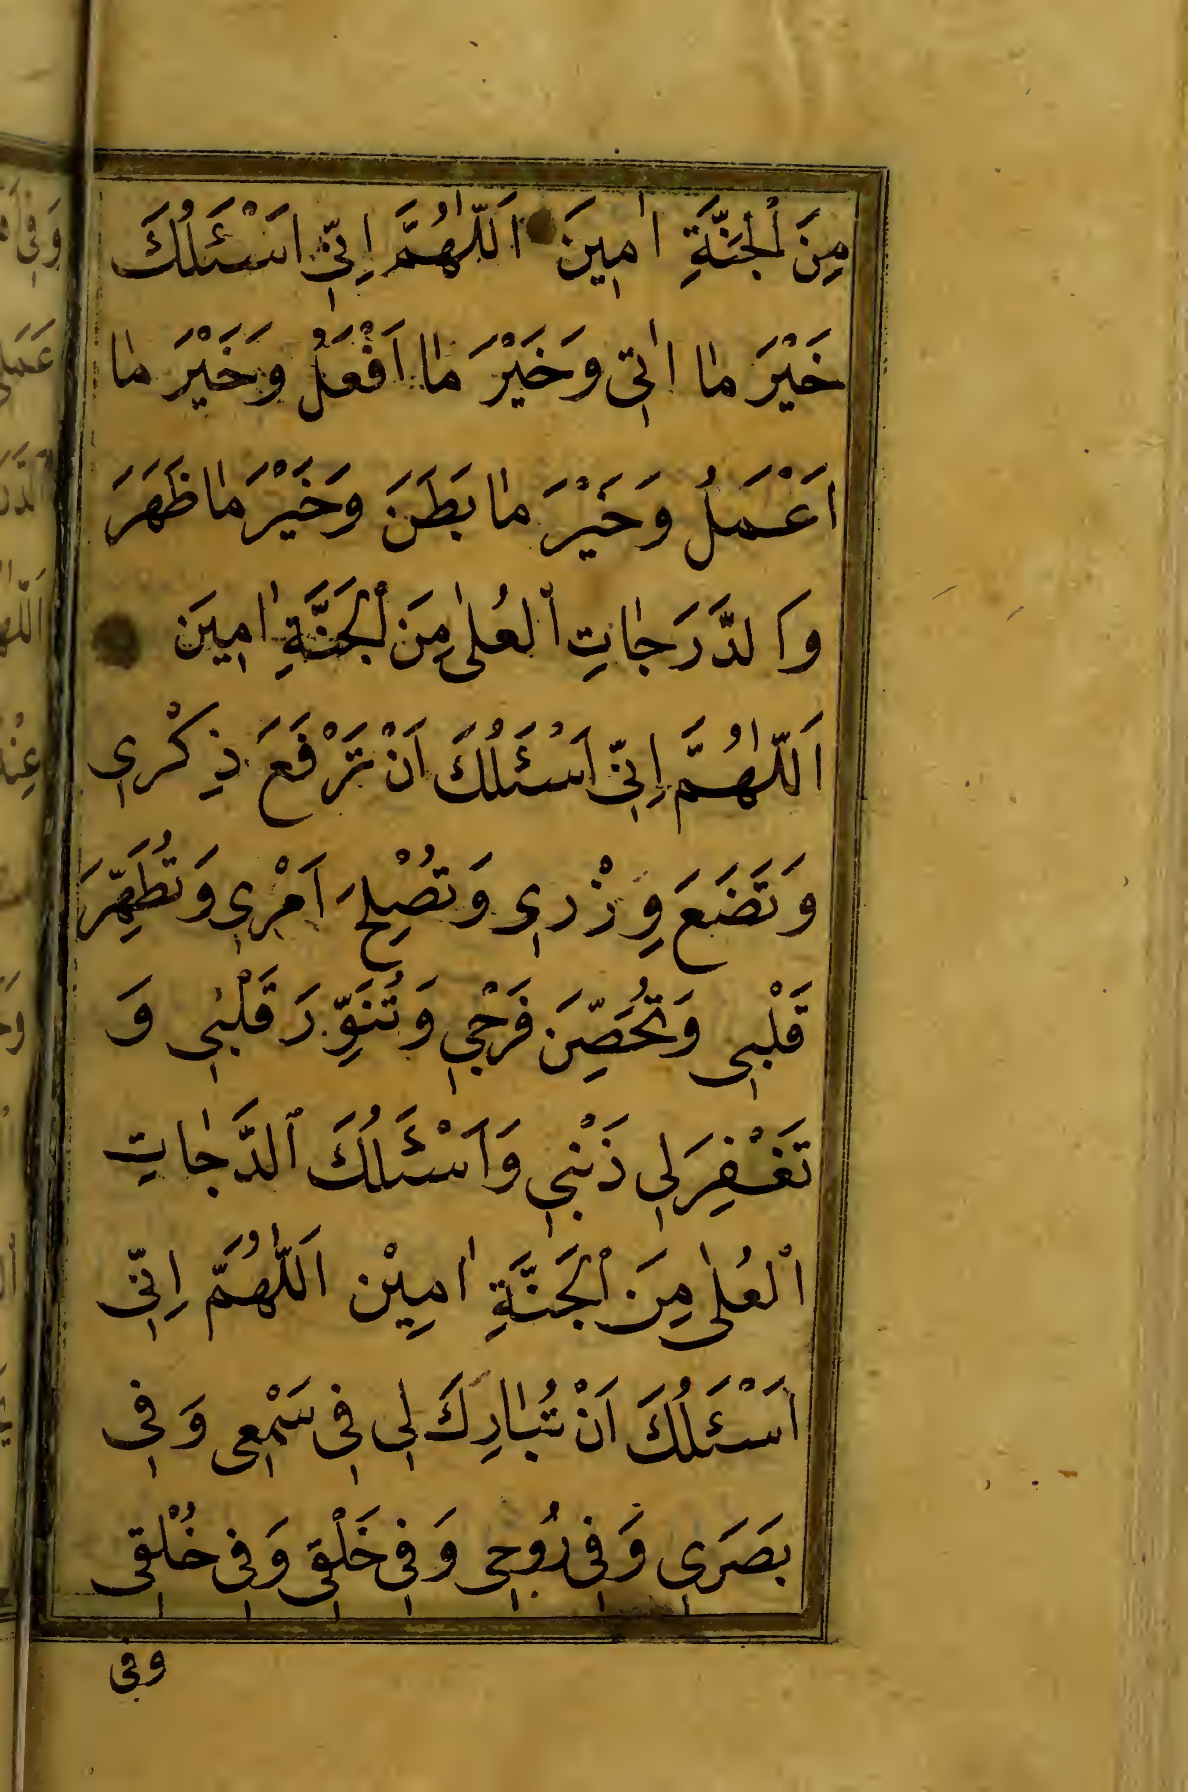 مِنَ الْجَنَّةِ اٰمِينَ اَللّٰهُمَّ اِنّٖي اَسْئَلُكَ
خَيْرَ مٰا اٰتٖي وَخَيْرَ مٰا اَفْعَلُ وَخَيْرَ مٰا
اَعْمَلُ وَخَيْرَ مٰا بَطَنَ وَخَيْرَ مٰا ظَهَرَ
وَالدَّرَجٰاتِ الْعُلىٰ مِنَ الْجَنَّةِ اٰمٖينَ
اَللّٰهُمَّ اِنّٖي اَسْئَلُكَ اَنْ تَرْفَعَ ذِكْرٖي
وَتَضَعَ وِزْرٖي وَتُصْلِحَ اَمْرٖي وَتُطَهِّرَ
قَلْبٖي وَتُحَصِّنَ فَرْجٖي وَتُنَوِّرَ قَلْبٖي وَ
تَغْفِرَ لٖي ذَنْبٖي وَاَسْئَلُكَ الدَّجٰاتِ
الْعُلىٰ مِنَ الْجَنَّةِ اٰمِيْن اَللّٰهُمَّ اِنّٖي
اَسْئَلُكَ اَنْ تُبٰارِكَ لٖي فٖي سَمْعٖي وَفٖي
بَصَرٖي وَفٖي رُوحٖي وَفٖي خَلْقٖي وَفٖي خُلْقٖي
وفي